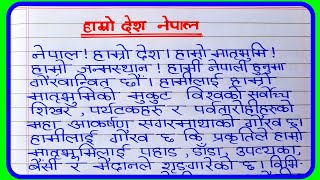 हाम्रो देश नेपाल
नेपाल! हाम्रो देश। हाम्रो मातृभूमि!
हाम्रो जन्मस्थान! हामी नेपाली हुनुमा
गौरवान्वित छौं। हामीलाई हाम्रो
मातृभूमिको मुकुट विश्वको सर्वोच्च
शिखर, पर्यटकहरु र पर्वतारोहीहरुको
महा आकर्षण सगरमाथाको गौरव छ।
हामीलाई गौरव छ कि प्रकृतिले हाम्रो
मातृभूमिलाई पहाड, डाँडा, उपत्यका,
बेंसी र मैदानले शृङ्गारेको छ। विभि-